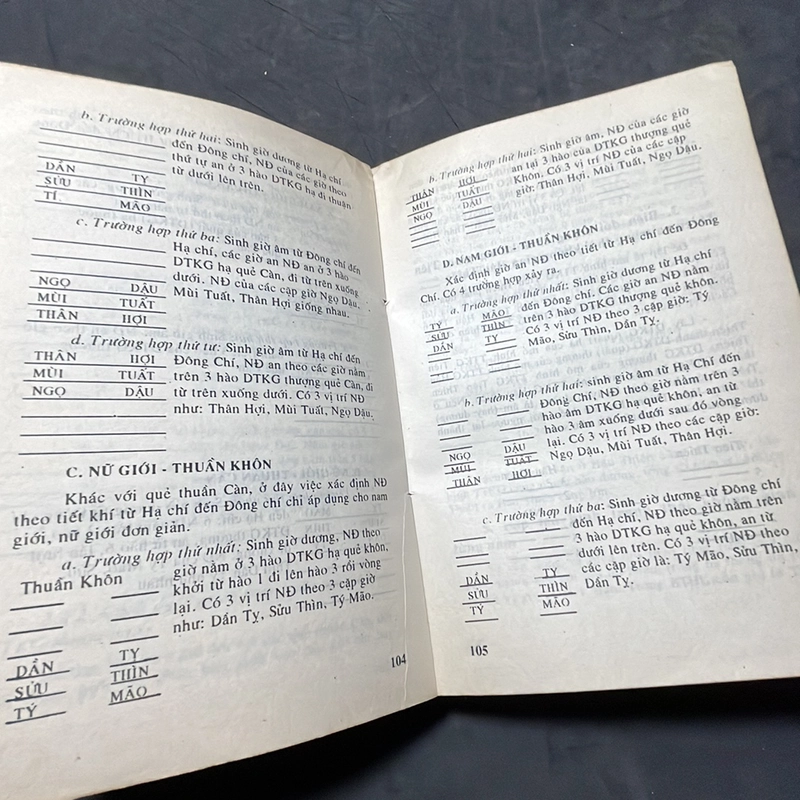 b. Trường hợp thứ hai: Sinh giờ dương từ Hạ chí
đến Đông chí, NĐ của các giờ theo
thứ tự an ở 3 hào DTKG hạ đi thuận
từ dưới lên trên.
DẦN TỴ
SỬU THÌN
TÍ MÃO
c. Trường hợp thứ ba: Sinh giờ âm từ Đông chí đến
Hạ chí, các giờ an NĐ an ở 3 hào
DTKG hạ quẻ Càn, đi từ trên xuống
dưới. NĐ của các cặp giờ Ngọ Dậu,
Mùi Tuất, Thân Hợi giống nhau.
NGỌ DẬU
MÙI TUẤT
THÂN HỢI
d. Trường hợp thứ tư: Sinh giờ âm từ Hạ chí đến
Đông Chí, NĐ an theo các giờ nằm
trên 3 hào DTKG thượng quẻ Càn, đi
từ trên xuống dưới. Có 3 vị trí NĐ
như: Thân Hợi, Mùi Tuất, Ngọ Dậu.
THÂN HỢI
MÙI TUẤT
NGỌ DẬU
C. NỮ GIỚI - THUẦN KHÔN
Khác với quẻ thuần Càn, ở đây việc xác định NĐ
theo tiết khí từ Hạ chí đến Đông chí chỉ áp dụng cho nam
giới, nữ giới đơn giản.
a. Trường hợp thứ nhất: Sinh giờ dương, NĐ theo
giờ nằm ở 3 hào DTKG hạ quẻ khôn,
khởi từ hào 1 đi lên hào 3 rồi vòng
lại. Có 3 vị trí NĐ theo 3 cặp giờ
như: Dần Tỵ, Sửu Thìn, Tý Mão.
Thuần Khôn
DẦN TỴ
SỬU THÌN
TÝ MÃO
104
b. Trường hợp thứ hai: Sinh giờ âm, NĐ của các giờ
an tại 3 hào của DTKG thượng quẻ
Khôn. Có 3 vị trí NĐ của các cặp
giờ: Thân Hợi, Mùi Tuất, Ngọ Dậu.
THÂN HỢI
MÙI TUẤT
NGỌ DẬU
D. NAM GIỚI - THUẦN KHÔN
Xác định giờ an NĐ theo tiết từ Hạ chí đến Đông
Chí. Có 4 trường hợp xảy ra.
a. Trường hợp thứ nhất: Sinh giờ dương từ Hạ chí
đến Đông chí, Các giờ an NĐ nằm
trên 3 hào DTKG thượng quẻ khôn.
Có 3 vị trí NĐ theo 3 cặp giờ: Tý
Mão, Sửu Thìn, Dần Tỵ.
TÝ MÃO
SỬU THÌN
DẦN TỴ
b. Trường hợp thứ hai: sinh giờ âm từ Hạ Chí đến
Đông Chí, NĐ theo giờ nằm trên 3
hào âm DTKG thượng quẻ khôn, an từ
hào 3 âm xuống dưới sau đó vòng
lại. Có 3 vị trí NĐ theo các cặp giờ:
Ngọ Dậu, Mùi Tuất, Thân Hợi.
NGỌ DẬU
MÙI TUẤT
THÂN HỢI
c. Trường hợp thứ ba: Sinh giờ dương từ Đông chí
đến Hạ chí, NĐ theo giờ nằm trên
3 hào DTKG hạ quẻ khôn, an từ
dưới lên trên. Có 3 vị trí NĐ theo
các cặp giờ là: Tý Mão, Sửu Thìn,
Dần Tỵ.
DẦN TỴ
SỬU THÌN
TÝ MÃO
105